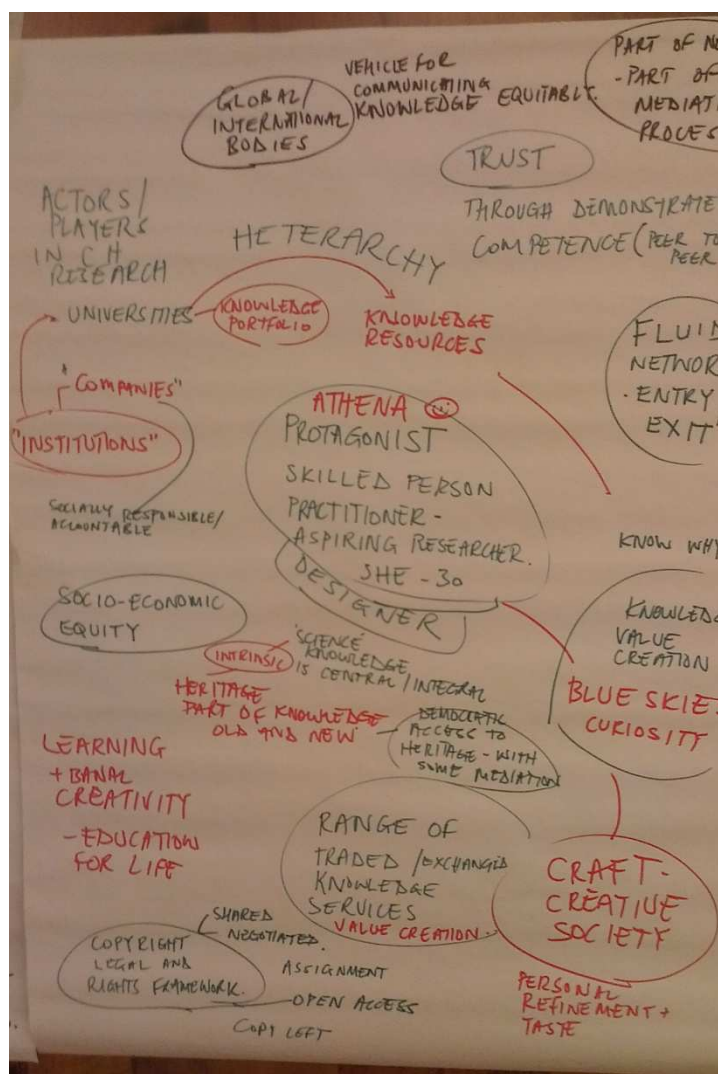 GLOBAL/
INTERNATIONAL
BODIES
VEHICLE FOR
COMMUNICATING
KNOWLEDGE EQUITABLE.
PART OF
- PART OF
MEDIATI
PROCES
TRUST
THROUGH DEMONSTRATE
COMPETENCE (PEER TO
PEER
ACTORS/
PLAYERS
IN CH
RESEARCH
HETERARCHY
UNIVERSITIES
KNOWLEDGE
PORTFOLIO
KNOWLEDGE
RESOURCES
FLUID
NETWOR
· ENTRY
EXIT
"COMPANIES"
"INSTITUTIONS"
SOCIALLY RESPONSIBLE/
ACCOUNTABLE
ATHENA
PROTAGONIST
SKILLED PERSON
PRACTITIONER -
ASPIRING RESEARCHER.
SHE - 30
DESIGNER
KNOW WHY
KNOWLEDG
VALUE
CREATION
BLUE SKIE
CURIOSITY
SOCIO-ECONOMIC
EQUITY
INTRINSIC
'SCIENCE'
KNOWLEDGE
IS CENTRAL / INTEGRAL
HERITAGE
PART OF KNOWLEDGE
OLD AND NEW
DEMOCRATIC
ACCESS TO
HERITAGE - WITH
SOME MEDIATION
LEARNING
+ BANAL
CREATIVITY
- EDUCATION
FOR LIFE
RANGE OF
TRADED / EXCHANGED
KNOWLEDGE
SERVICES
VALUE CREATION
CRAFT-
CREATIVE
SOCIETY
PERSONAL
REFINEMENT +
TASTE
COPYRIGHT
LEGAL AND
RIGHTS FRAMEWORK.
SHARED
NEGOTIATED.
ASSIGNMENT
OPEN ACCESS
COPY LEFT